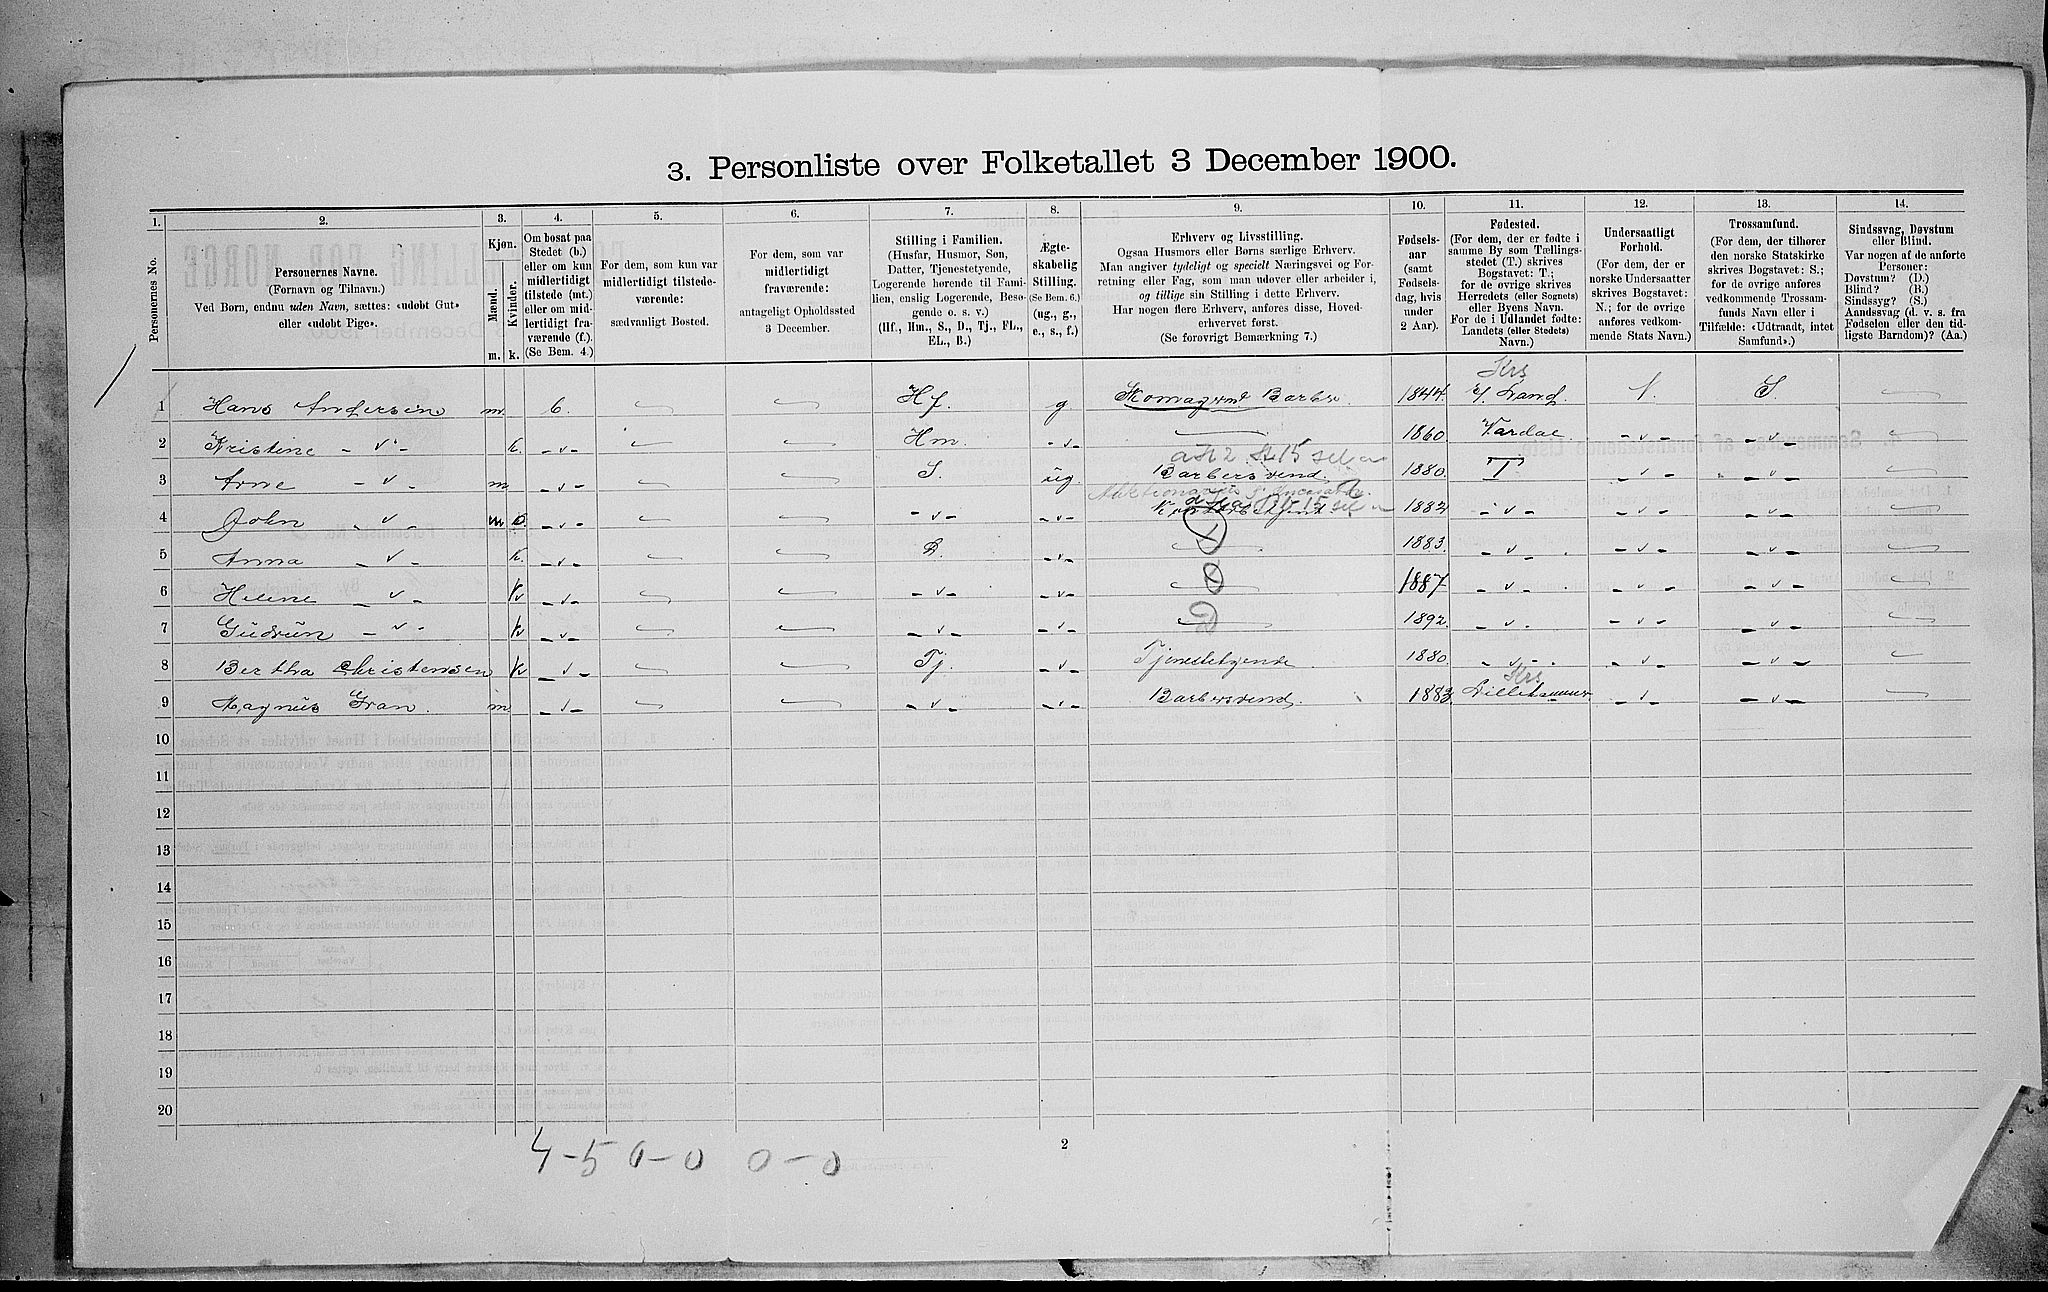 3. Personliste over Folketallet 3 December 1900.
1. 2. 3. 4. 5. 6. 7. 8. 9. 10. 11. 12. 13. 14.
Personernes No.
Personernes Navne.
(Fornavn og Tilnavn.)
Ved Børn, endnu uden Navn, sættes: «udøbt Gut»
eller «udøbt Pige».
Kjøn.
Mænd.
Kvinder.
m. k.
Om bosat paa
Stedet (b.)
eller om kun
midlertidigt
tilstede (mt.)
eller om mid-
lertidigt fra-
værende (f.).
(Se Bem. 4.)
For dem, som kun var
midlertidigt tilstede-
værende:
sædvanligt Bosted.
For dem, som var
midlertidigt
fraværende:
antageligt Opholdssted
3 December.
Stilling i Familien.
(Husfar, Husmor, Søn,
Datter, Tjenestetyende,
Logerende hørende til Fami-
lien, enslig Logerende, Besø-
gende o. s. v.)
(Hf., Hm., S., D., Tj., FL.,
EL., B.)
Ægte-
skabelig
Stilling.
(Se Bem. 6.)
(ug., g.,
e., s., f.)
Erhverv og Livsstilling.
Ogsaa Husmors eller Børns særlige Erhverv.
Man angiver tydeligt og specielt Næringsvei og For-
retning eller Fag, som man udøver eller arbeider i,
og tillige sin Stilling i dette Erhverv.
Har nogen flere Erhverv, anføres disse, Hoved-
erhvervet først.
(Se forøvrigt Bemærkning 7.)
Fødsels-
aar
(samt
Fødsels-
dag, hvis
under
2 Aar).
Fødested.
(For dem, der er fødte i
samme By som Tællings-
stedet (T.) skrives
Bogstavet: T.;
for de øvrige skrives
Herredets (eller Sognets)
eller Byens Navn.
For de i Udlandet fødte:
Landets (eller Stedets)
Navn.)
Undersaatligt
Forhold.
(For dem, der er
norske Undersaatter
skrives Bogstavet:
N.; for de øvrige
anføres vedkom-
mende Stats Navn.)
Trossamfund.
(For dem, der tilhører
den norske Statskirke
skrives Bogstavet: S.;
for de øvrige anføres
vedkommende Trossam-
funds Navn eller i
Tilfælde: «Udtraadt, intet
Samfund».)
Sindssvag, Døvstum
eller Blind.
Var nogen af de anførte
Personer:
Døvstum? (D.)
Blind? (B.)
Sindssyg? (S.)
Aandssvag (d. v. s. fra
Fødselen eller den tid-
ligste Barndom)? (Aa.)
Krs
1 Hans Andersen m b. Hf. g Barber. 1844. Land. N. S.
2 Kristine - v - k. - v - Hm. - v - 1860 Vardal. - v - - v -
3 Arne - v - m - v - S. ug. Barbersvend. 1880. T - v - - v -
4 John - v - m - v - - v - - v - 1882 - v - - v - - v -
5 Anna - v - k. - v - D. - v - 1883. - v - - v - - v -
6 Helene - v - kv - v - - v - - v - 1887. - v - - v - - v -
7 Gudrun - v - kv - v - - v - - v - 1892. - v - - v - - v -
8 Bertha Christensen kv - v - Tj. - v - Tjenestetyende 1880. - v - - v - - v -
Krs
9 Magnus Gran. m - v - - v - - v - Barbersvend. 1883. Lillehammer - v - - v -
10
11
12
13
14
15
16
17
18
19
20
2
4 - 5 0 - 0 0 - 0